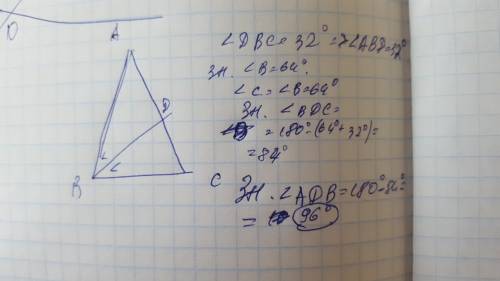 O
A
D
B
C
∠DBC = 32° => ∠ABD = 32°
Зн. ∠B = 64°.
∠C = ∠B = 64°
Зн. ∠BDC =
= 180° - (64° + 32°) =
= 84°
Зн. ∠ADB = 180° - 84° =
= 96°